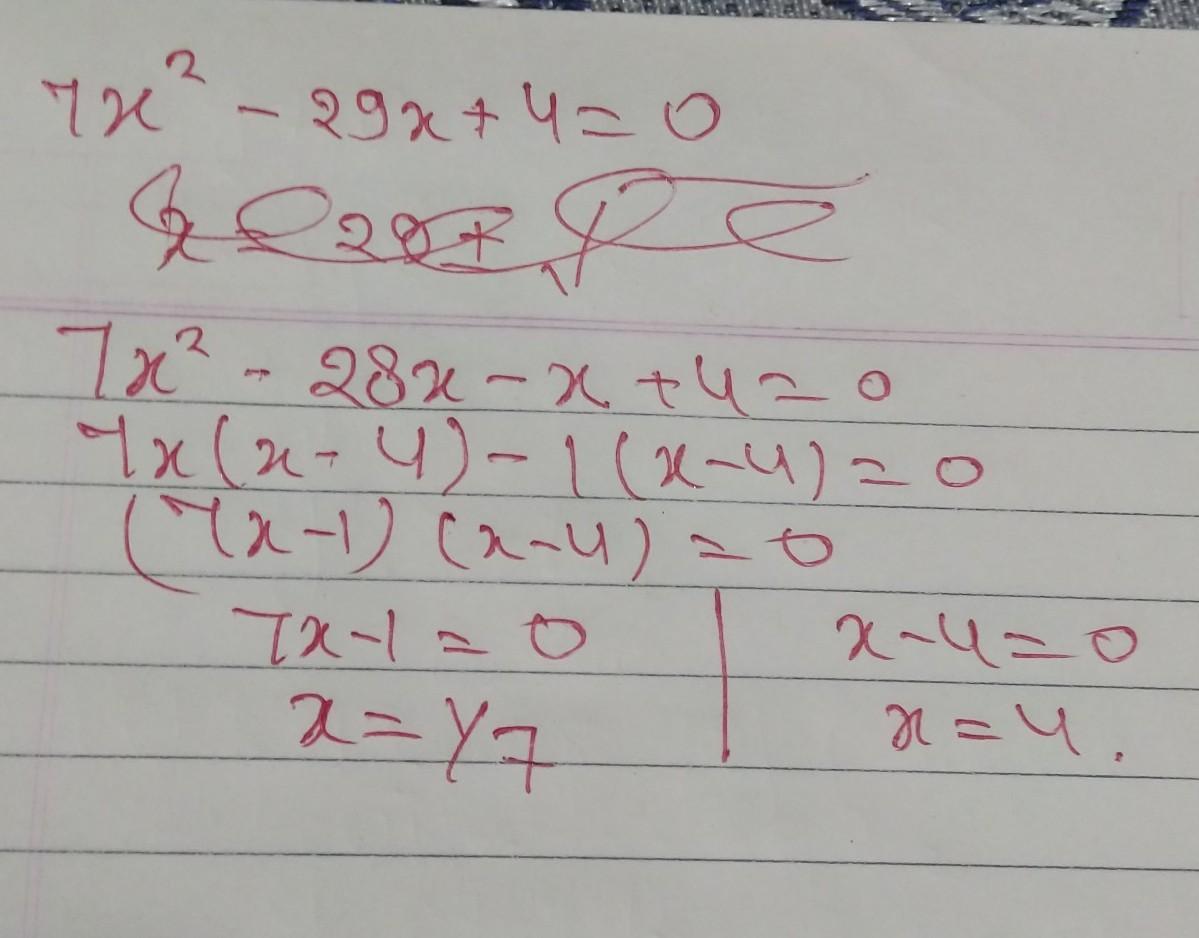 7x² - 29x + 4 = 0
7x² - 28x - x + 4 = 0
7x(x - 4) - 1(x - 4) = 0
(7x - 1) (x - 4) = 0
7x - 1 = 0 | x - 4 = 0
x = 1/7 | x = 4.